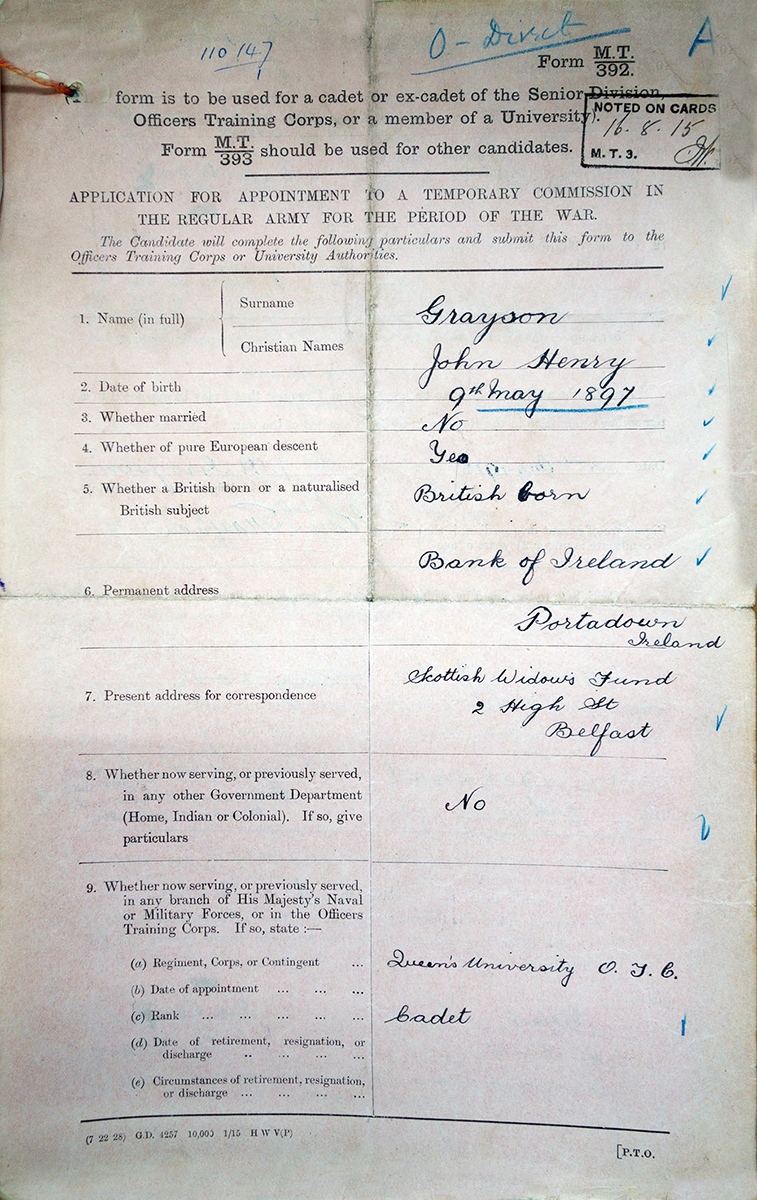 110147
O - Direct
A
Form M.T. 392.
form is to be used for a cadet or ex-cadet of the Senior Division,
Officers Training Corps, or a member of a University).
Form M.T. 393 should be used for other candidates.
NOTED ON CARDS
16.8.15
M.T. 3.
APPLICATION FOR APPOINTMENT TO A TEMPORARY COMMISSION IN
THE REGULAR ARMY FOR THE PERIOD OF THE WAR.
The Candidate will complete the following particulars and submit this form to the
Officers Training Corps or University Authorities.
1. Name (in full)
Surname
Grayson
Christian Names
John Henry
2. Date of birth
9th May 1897
3. Whether married
No
4. Whether of pure European descent
Yes
5. Whether a British born or a naturalised
British subject
British born
6. Permanent address
Bank of Ireland
Portadown
Ireland
7. Present address for correspondence
Scottish Widows Fund
2 High St
Belfast
8. Whether now serving, or previously served,
in any other Government Department
(Home, Indian or Colonial). If so, give
particulars
No
9. Whether now serving, or previously served,
in any branch of His Majesty's Naval
or Military Forces, or in the Officers
Training Corps. If so, state :—
(a) Regiment, Corps, or Contingent ...
Queen's University O. T. C.
(b) Date of appointment ... ... ...
(c) Rank ... ... ... ... ...
Cadet
(d) Date of retirement, resignation, or
discharge .. ... ... ...
(e) Circumstances of retirement, resignation,
or discharge ... ... ... ...
(7 22 28) G.D. 4257 10,000 1/15 H W V(P)
[P.T.O.